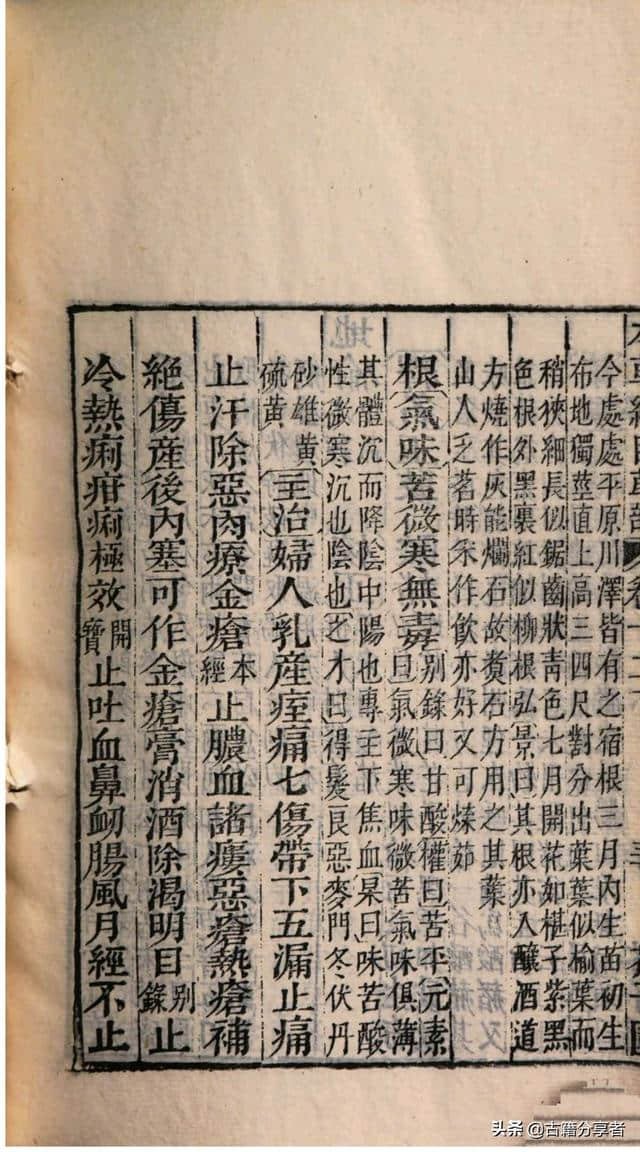 今處處平原川澤皆有之宿根三月內生苗初生
布地獨莖直上高三四尺對分出葉葉似榆葉而
稍狹細長似鋸齒狀青色七月開花如椹子紫黑
色根外黑裏紅似柳根弘景曰其根亦入釀酒道
方燒作灰能爛石故煑石方用之其葉
山人乏茗時采作飲亦好又可煠茹
根氣味苦微寒無毒
別錄曰甘酸權曰苦平元素
曰氣微寒味微苦氣味俱薄
其體沉而降陰中陽也專主下焦血杲曰味苦酸
性微寒沉也陰也之才曰得髮良惡麥門冬伏丹
砂雄黃
硫黃
主治婦人乳產痓痛七傷帶下五漏止痛
止汗除惡肉療金瘡本經止膿血諸瘻惡瘡熱瘡補
絕傷產後內塞可作金瘡膏消酒除渴明目別錄止
冷熱痢疳痢極效開寶止吐血鼻衂腸風月經不止
头条 @古籍分享者